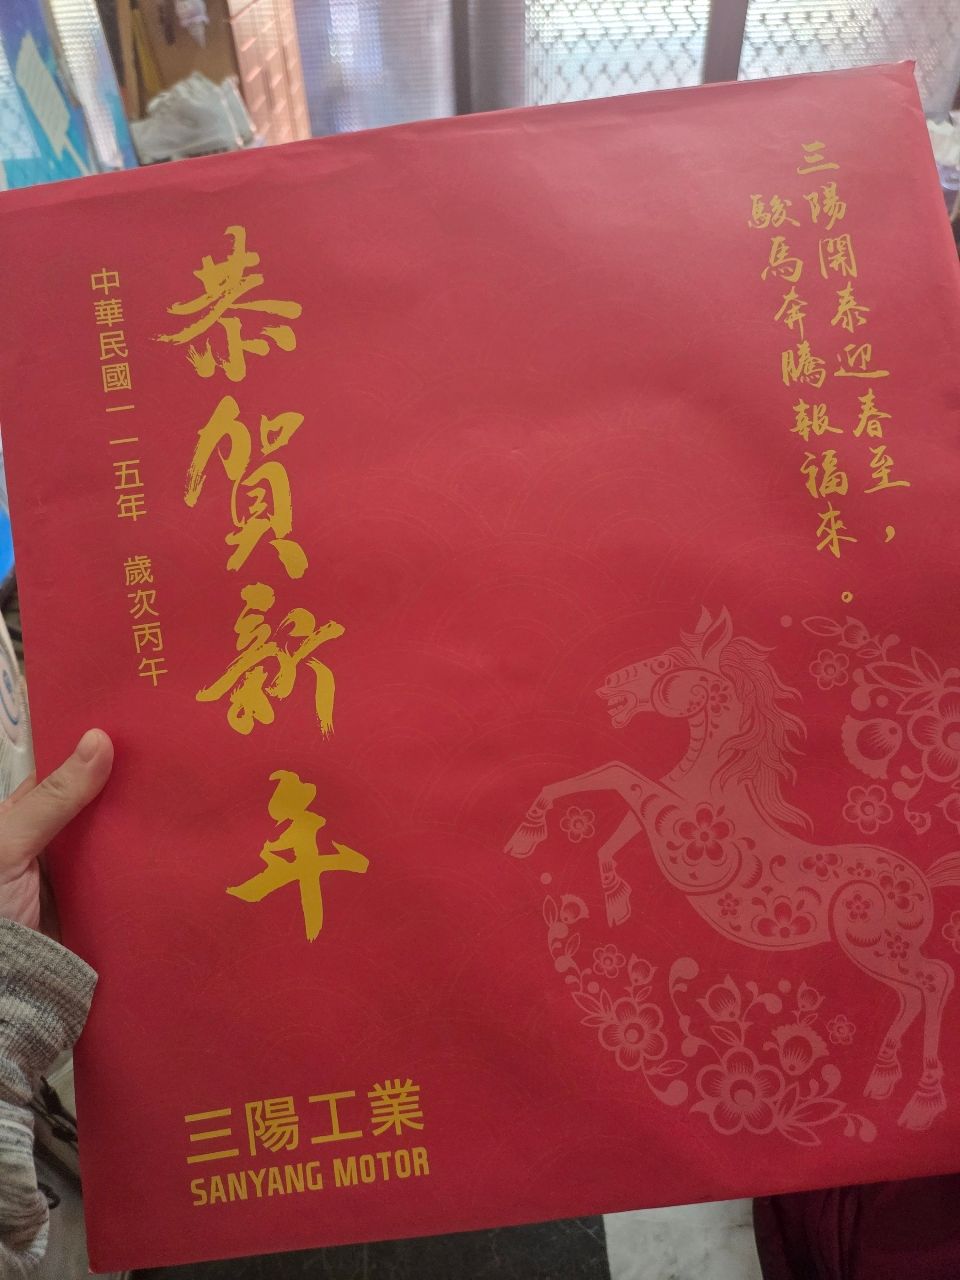 三陽開泰迎春至，
駿馬奔騰報福來。
恭賀新年
中華民國一一五年 歲次丙午
三陽工業
SANYANG MOTOR